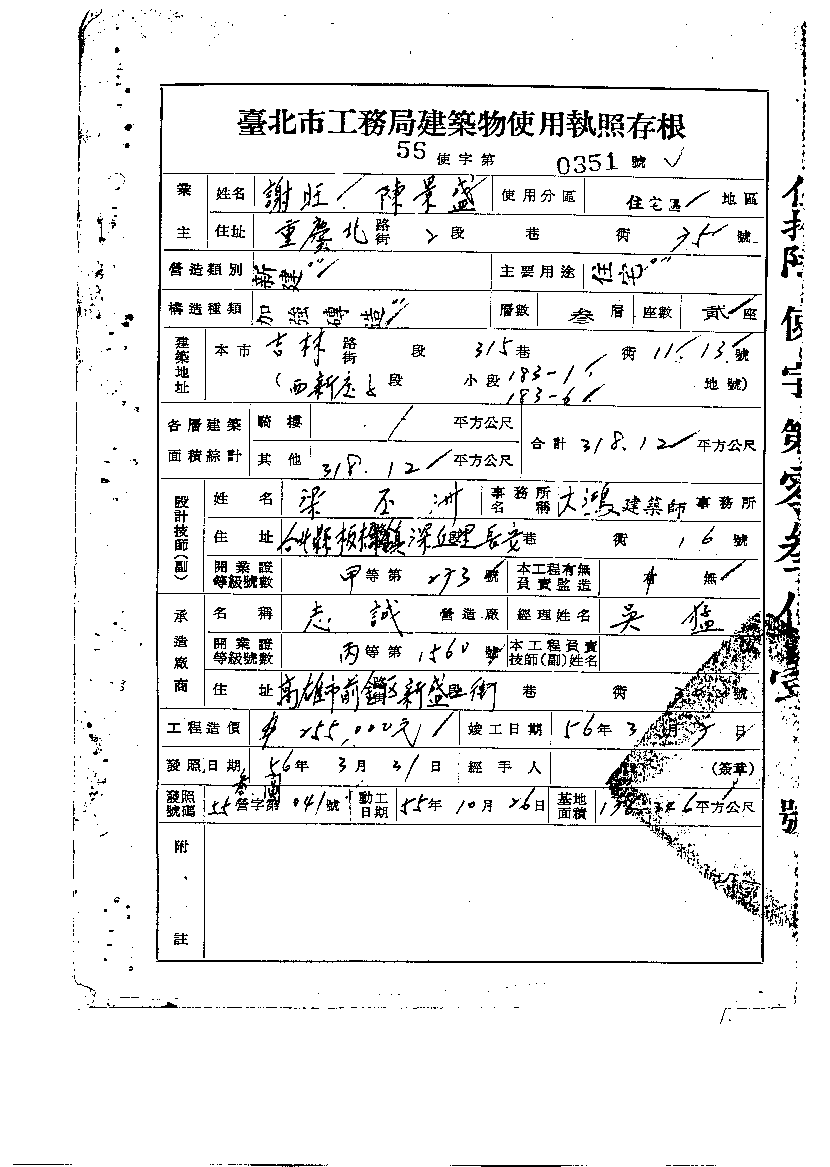 臺北市工務局建築物使用執照存根
56 使字第 0351 號
業主 姓名 謝旺 陳景盛 使用分區 住宅區 地區
住址 重慶北路街 2段 巷 衖 75 號
營造類別 新建 主要用途 住宅
構造種類 加強磚造 層數 叁層 座數 貳座
建築地址 本市 吉林路街 段 315巷 衖 11.13號
(西新庄子段 小段 183-1 183-6 地號)
各層建築面積綜計 騎樓 / 平方公尺 合計 318.12 平方公尺
其他 318.12 平方公尺
設計技師(副) 姓名 梁丕洲 事務所名稱 大鴻建築師事務所
住址 台北縣板橋鎮深丘里長安巷 衖 16 號
開業證等級號數 甲等第 273 號 本工程有無負責監造 有 無
承造廠商 名稱 志誠 營造廠 經理姓名 吳猛
開業證等級號數 丙等第 1560 號 本工程負責技師(副)姓名
住址 高雄市前鎮區新盛街 巷 衖 號
工程造價 255,000元 竣工日期 56年3月 日
發照日期 56年3月31日 經手人 (簽章)
發照號碼 55 營字第 041 號 動工日期 55年10月26日 基地面積 平方公尺
附註
使字第零叁 壹號